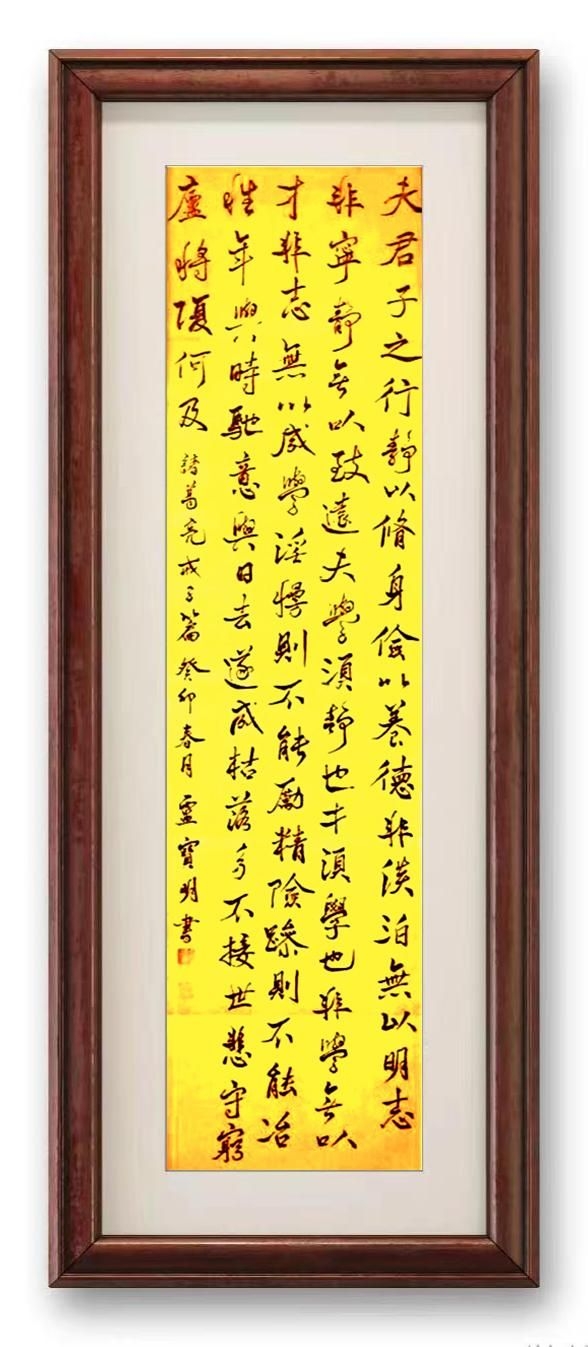 夫君子之行靜以脩身儉以養德非淡泊無以明志
非寧靜无以致遠夫學須靜也才須學也非學无以
才非志無以成學淫慢則不能勵精險躁則不能冶
性年與時馳意與日去遂成枯落多不接世悲守窮
廬將復何及 諸葛亮戒子篇 癸卯春月 寶明書